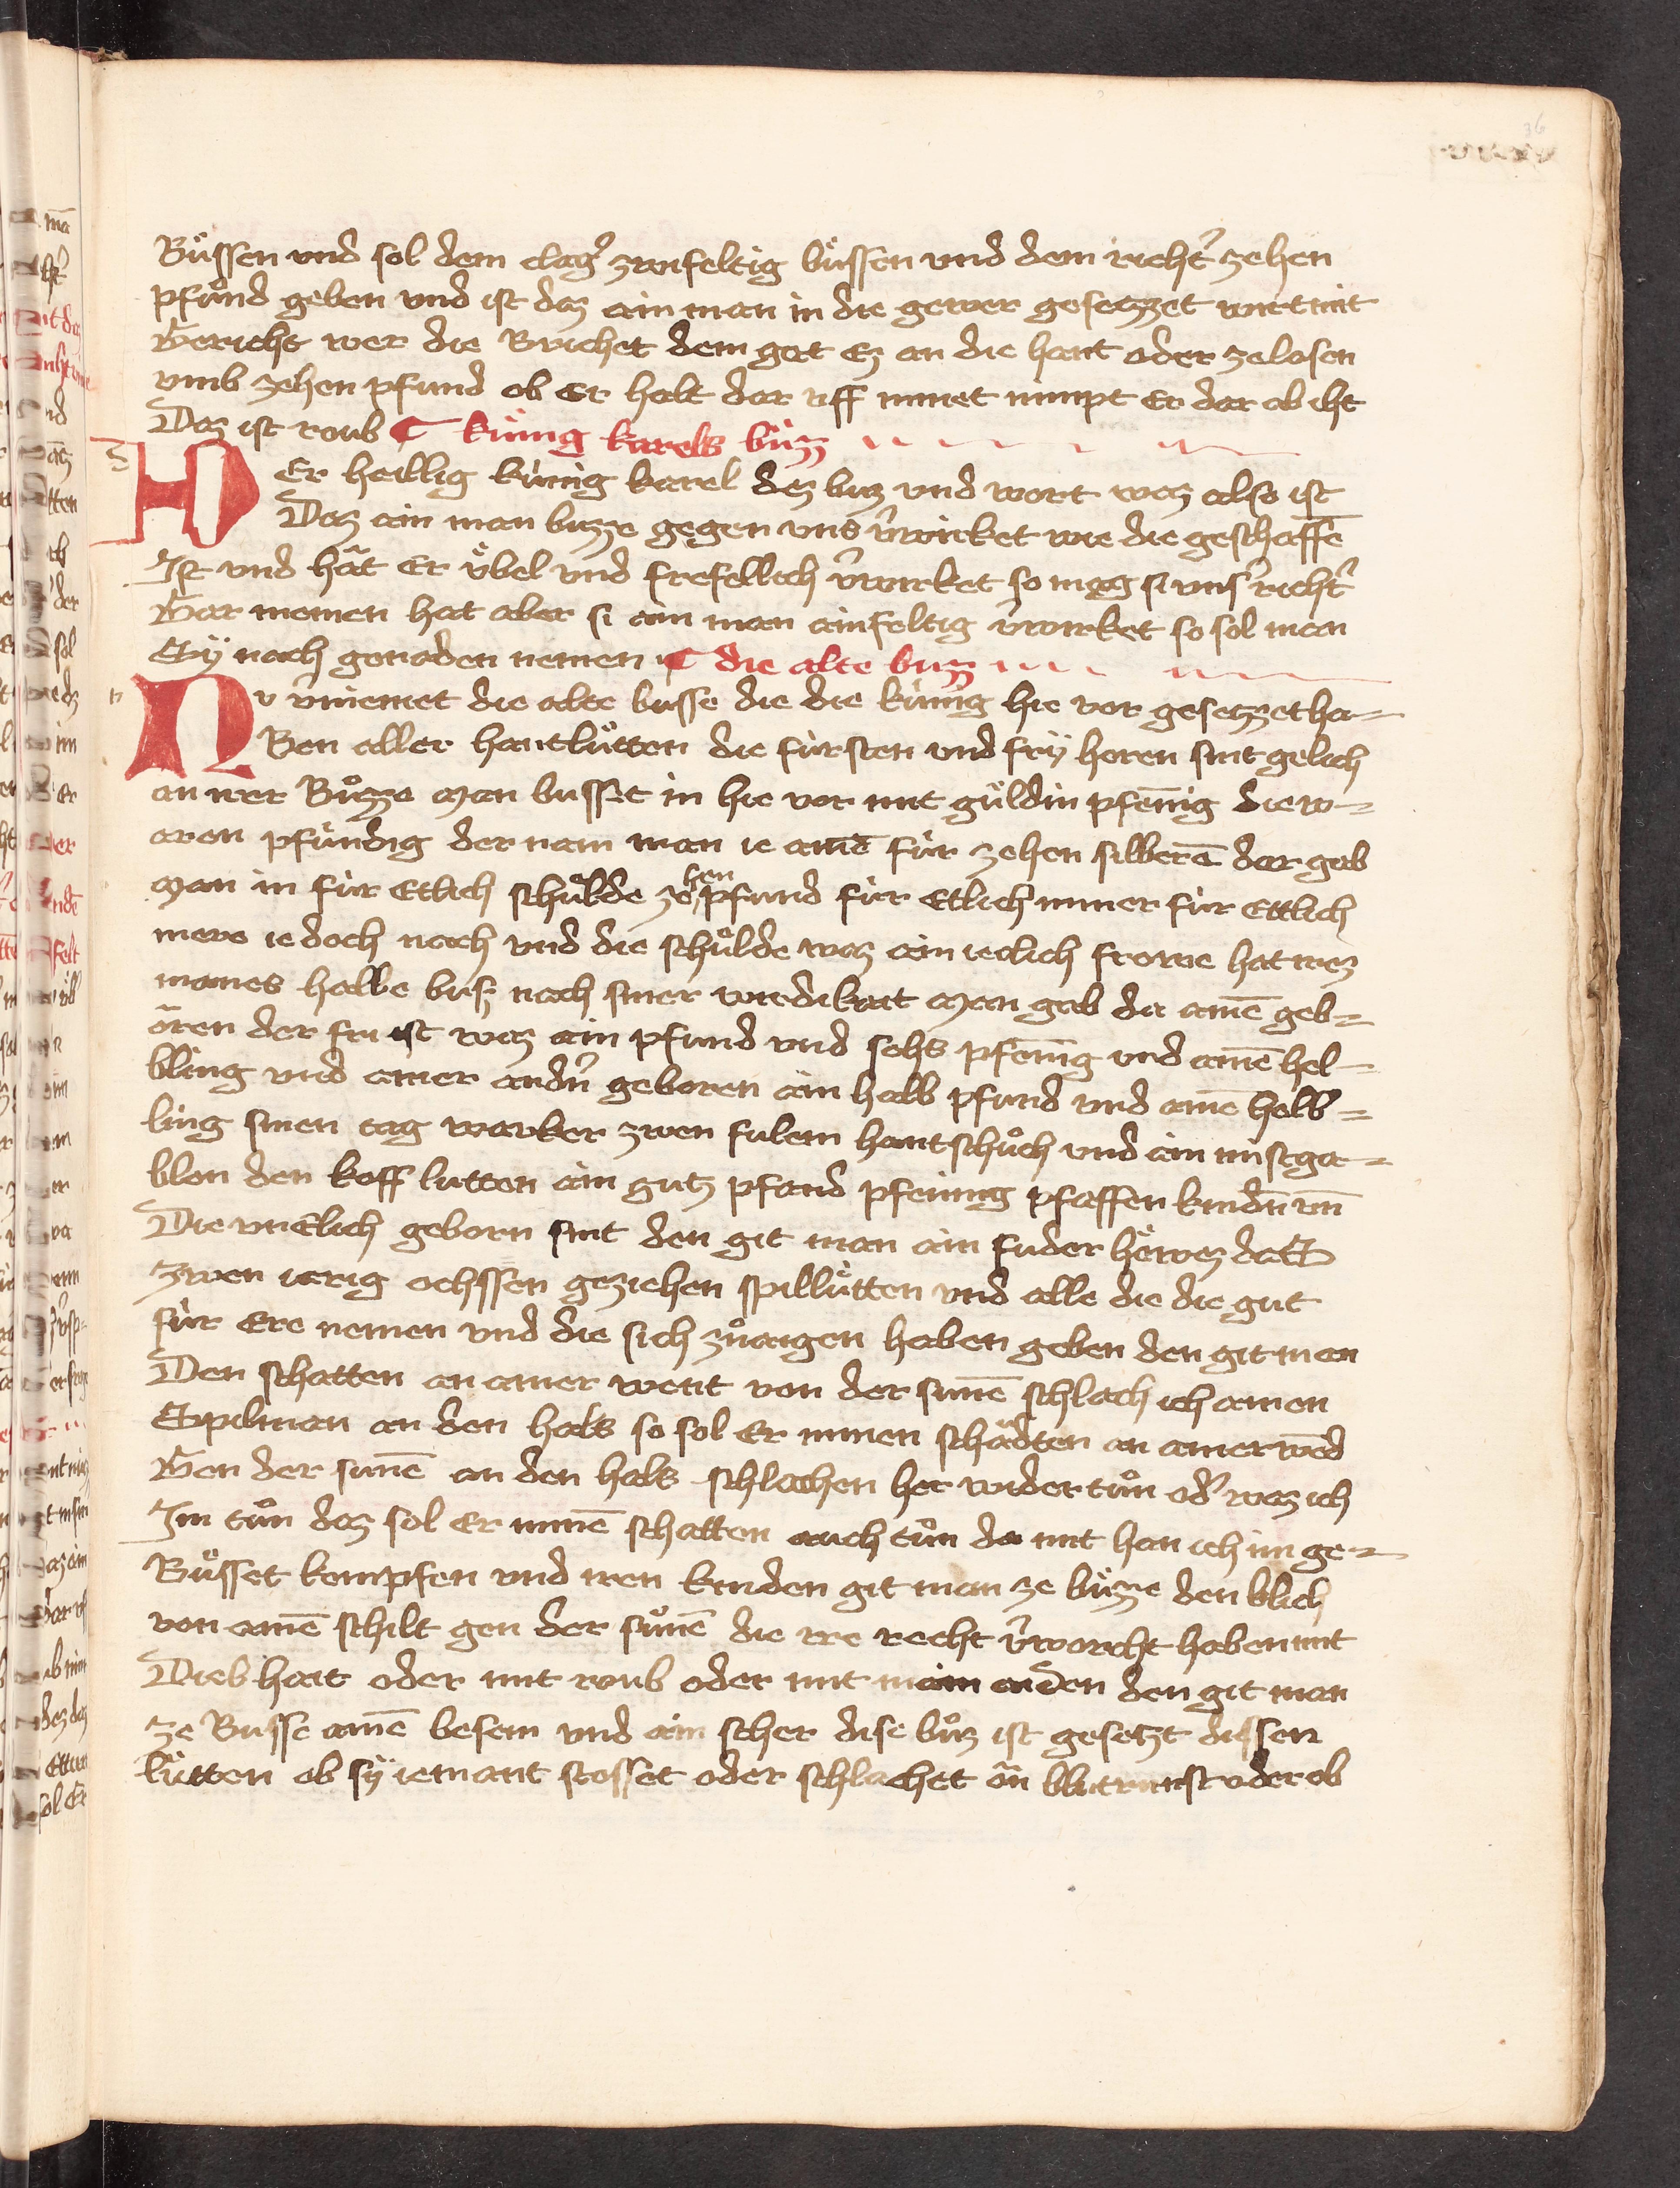 36
Bu̎ssen vnd sol dem clag̉ zwifeltig bu̎ssen vnd dem richt̉ zehen
pfund geben vnd ist daz ain man in die gewer gesetzzet wirt mit
Gericht wer die Brichet dem gat Ez an die hant oder ze losen
vmb zehen pfund ob Er halt dar vff nimet nimpt Er dar ab iht
Daz ist roub ¶ ku̎nig karels bu̎zz
Er hailig ku̎nig karel dez buz vnd wort waz also ist
Daz ain man buzze gegen vns v̉wircket wie die geschaffē
Ist vnd hāt Er v̎bel vnd frefellich v̉wurket so mag si vns̉ richt̉
Gar niemen hat aber si ain man ainfeltig v̉wurket so sol man
Sÿ nach genaden nemen ¶ die alte buzz
NV v̉niemet die alte busse die die ku̎nig hie vor gesetzzet ha=
Ben aller hantlu̎tten die fu̎rsten vnd frÿ heren sint gelich
an irer Bůzze man busset in hie vor mit gu̎ldin pfēnig die w=
aren pfu̎ndig der nam man ie ainē fu̎r zehen silberē dar gab
man in fu̎r Etlich schulde zehen pfund fu̎r Etlich minner fu̎r Ettlich
mere ie doch nach vnd die schulde waz ain ieclich frowe hat irez
manes halbe buß nach siner wirdikait man gab da ainē geb=
āren der fri ist waz ain pfund vnd sehs pfēnig vnd ainē hel=
bling vnd ainer andn̉ geboren ain halb pfund vnd ainē helb=
ling sinen tag warker zwen fulein hantschůch vnd ain mistga=
blen den koff lutten ain gutz pfand pfening pfaffen kindn̄ vn̄
Die vnelich geborn sint den git man ain fuder hőwez daz
Zwen ierig ochssen geziehen spillu̎tten vnd alle die die gut
fu̎r Ere nemen vnd die sich zů aigen haben geben den git man
Den schatten an ainer went von der sunē schlach ich ainen
Spilman an den hals so sol Er minen schadten an ainer wēd
Gen der sunē an den hals schlachen her wider tůn od̉ waz ich
Im tůn daz sol Er minē schatten auch tůn da mit han ich im ge=
Bu̎sset kempfen vnd iren kinden git man ze bu̎zze den blich
von ainē schilt gen der sunē die ire recht v̉worcht haben mit
Diebhait oder mit roub oder mit main aiden den git man
ze Busse ainē besem vnd ain scher dise bůz ist gesetzt dissen
lu̎tten ob sÿ iemant stosset oder schlachet ān blutrunst oder ob